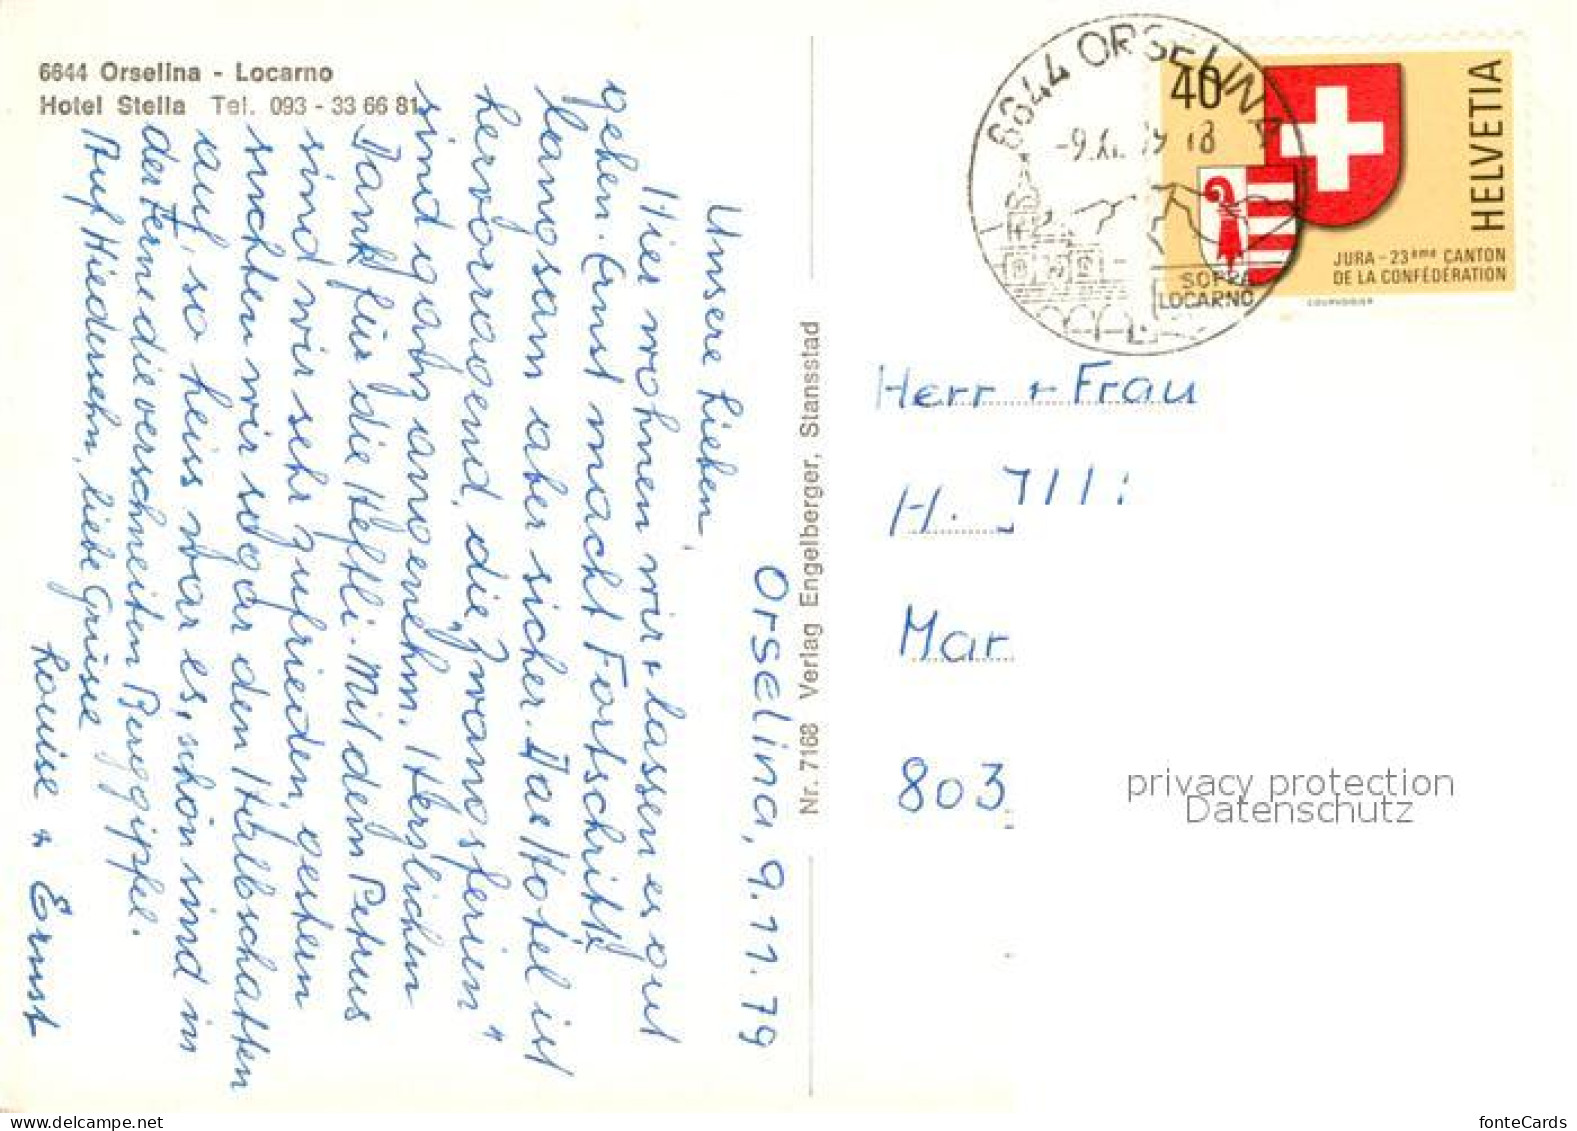 6644 Orselina - Locarno
Hotel Stella Tel. 093 - 33 66 81
Orselina, 9.11.79
Unsere Lieben,
Hier wohnen wir + lassen es gut
gehen. Ernst macht Fortschritte
langsam aber sicher. Das Hotel ist
hervorragend, die „Zwangsferien"
sind ganz angenehm. Herzlichen
Dank für die Heftli. Mit dem Petrus
sind wir sehr zufrieden, gestern
suchten wir sogar den Halbschatten
auf, so heiss war es, schön sind in
der Ferne die verschneiten Berggipfel.
Auf Wiedersehn, liebe Grüsse
Louise + Ernst
Nr. 7168 Verlag Engelberger, Stansstad
6644 ORSELINA
-9.XI.79 18
SOPRA
LOCARNO
40
HELVETIA
JURA - 23ème CANTON
DE LA CONFÉDÉRATION
COURVOISIER
Herr + Frau
H.
Mar
803
privacy protection
Datenschutz
fonteCards